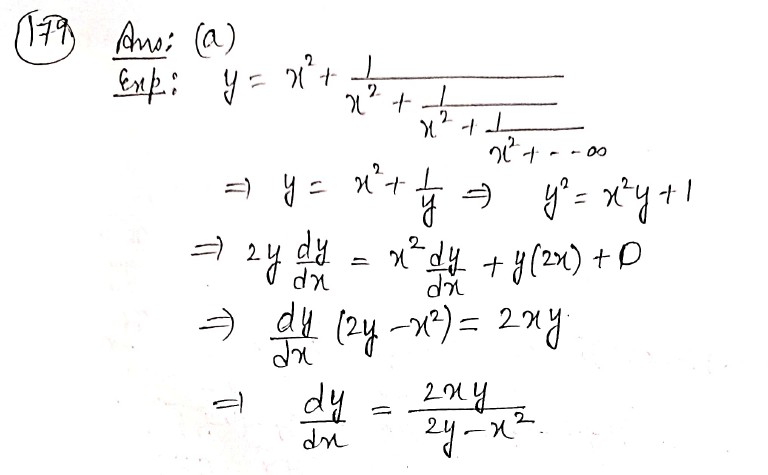 (179) Ans: (a)
Exp: y = x² + 1/(x² + 1/(x² + 1/(x² + - - ∞)))
⇒ y = x² + 1/y ⇒ y² = x²y + 1
⇒ 2y dy/dx = x² dy/dx + y(2x) + 0
⇒ dy/dx (2y - x²) = 2xy.
⇒ dy/dx = 2xy/(2y - x²).